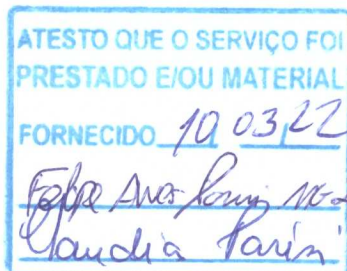 ATESTO QUE O SERVIÇO FOI
PRESTADO E/OU MATERIAL
FORNECIDO 10 03,22
Claudia Parisi